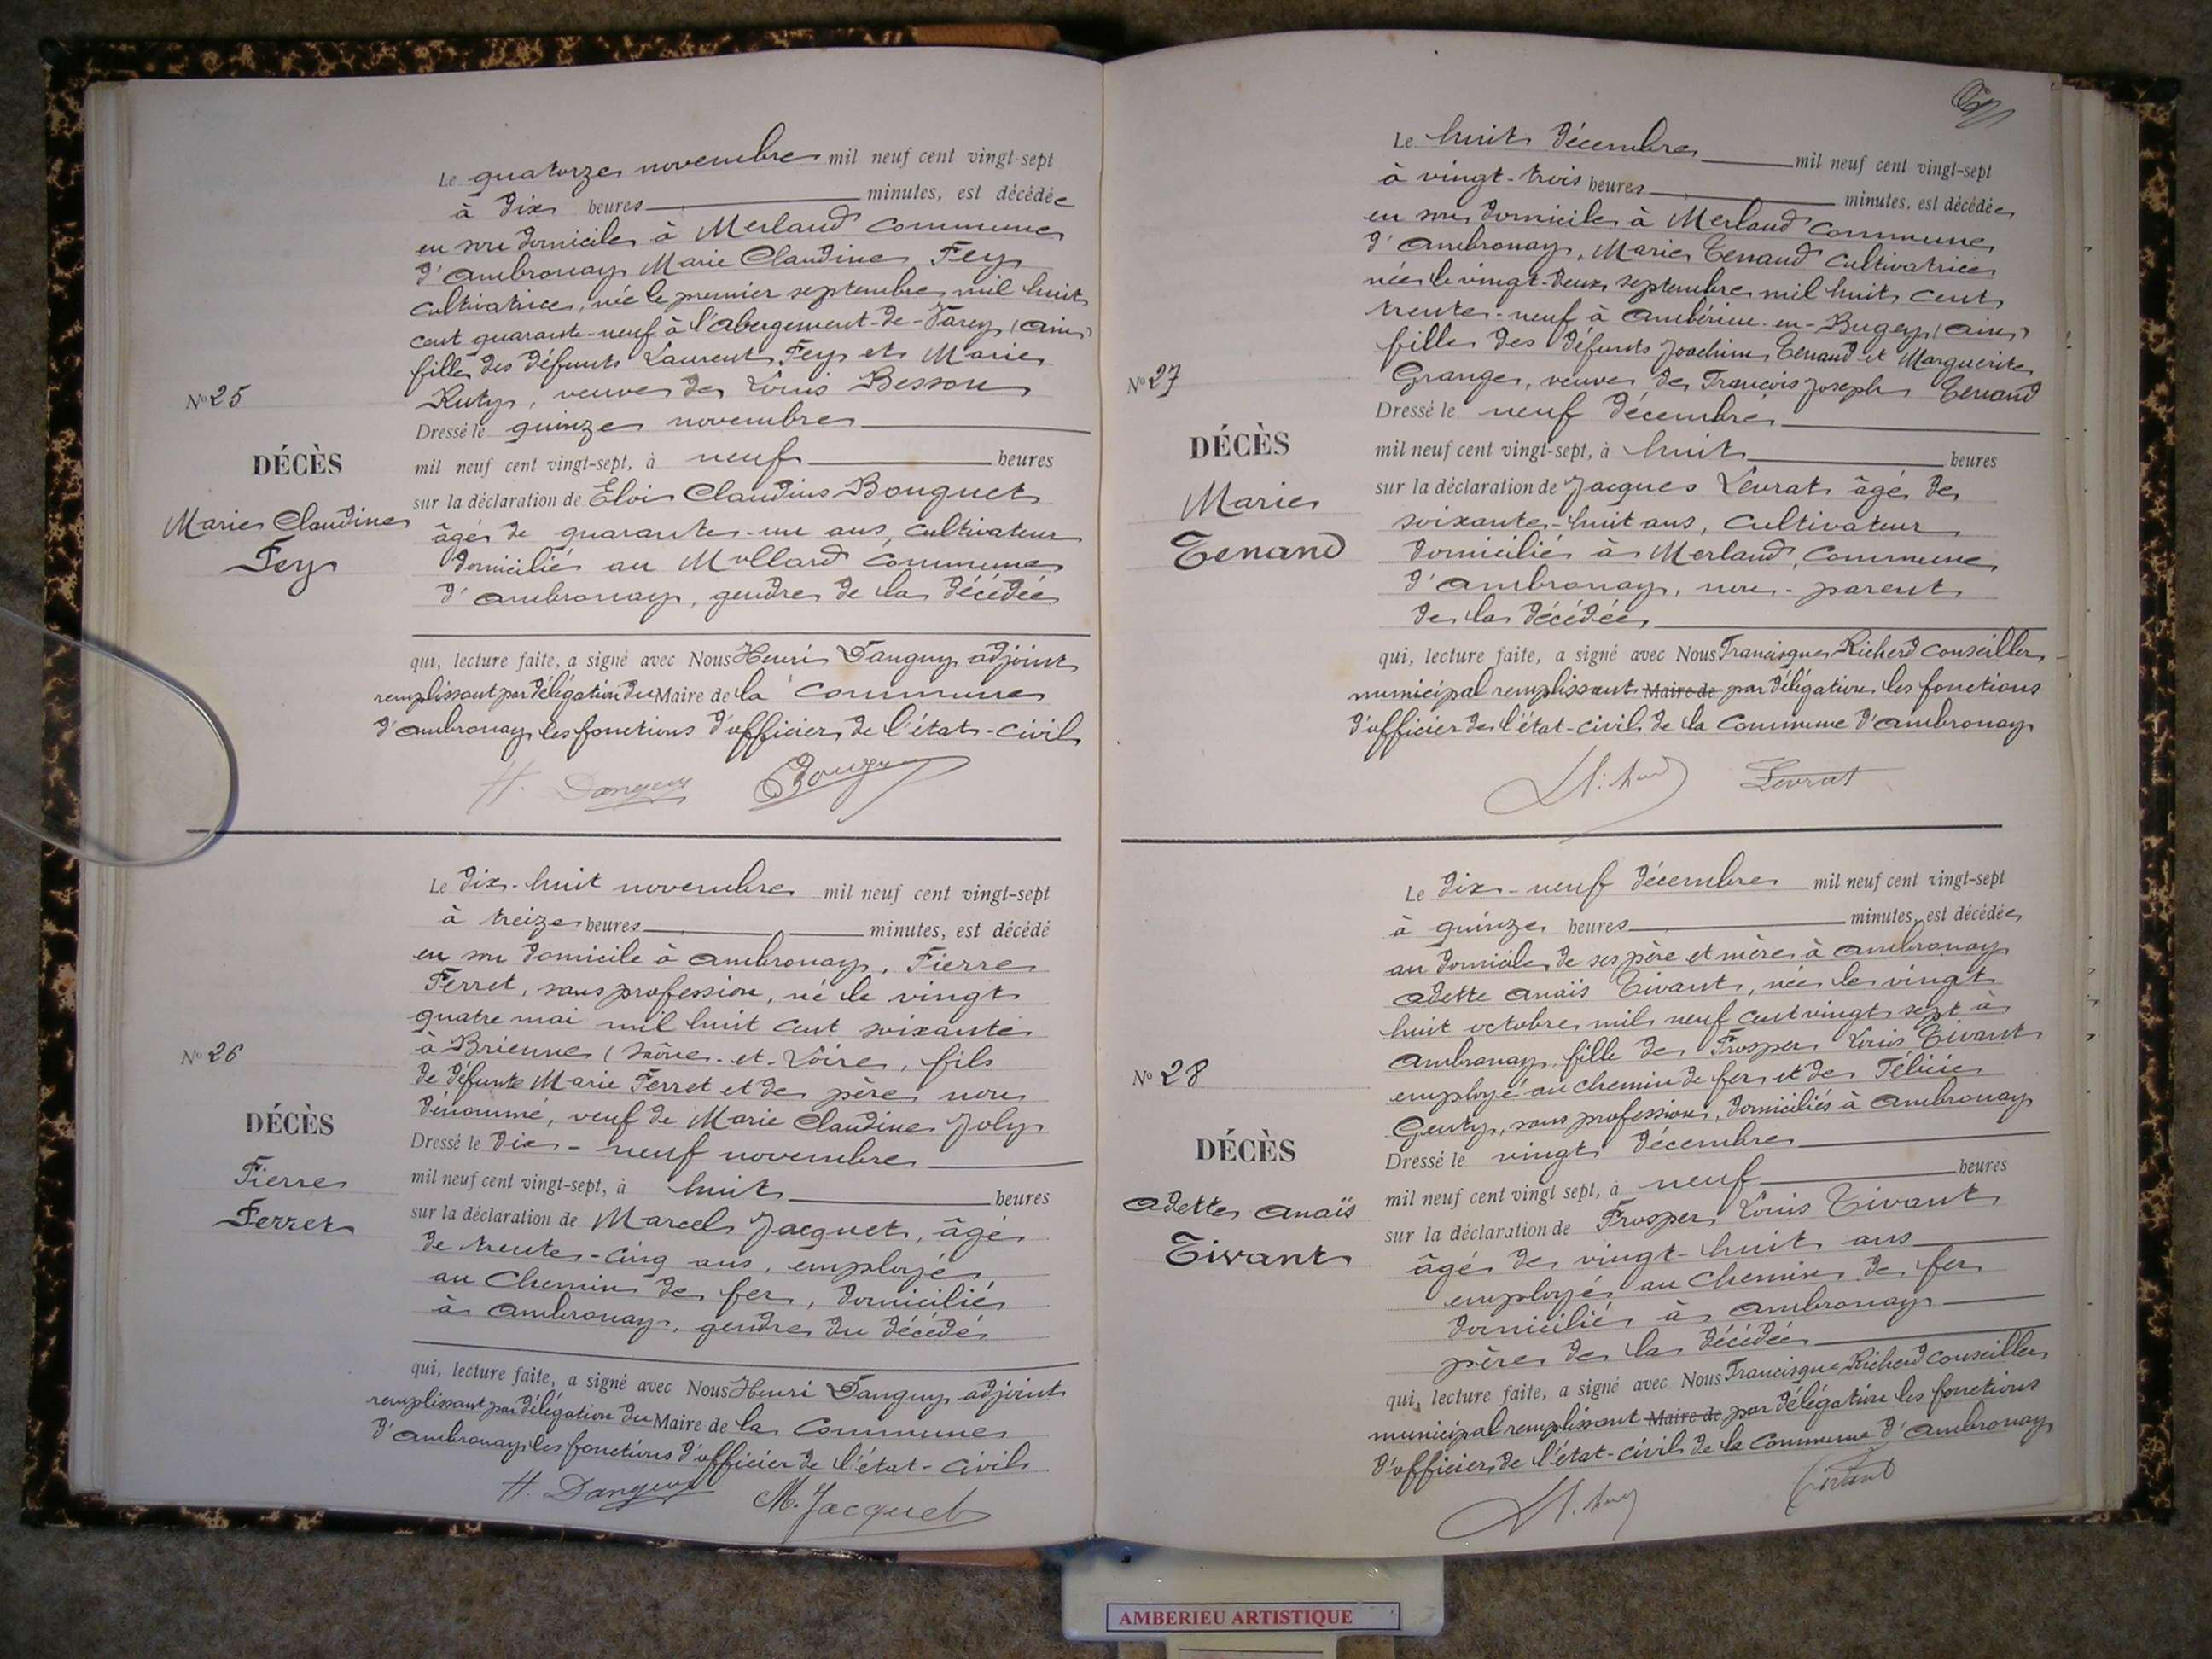 Le quatorze novembre mil neuf cent vingt-sept
à dix heures minutes, est décédée
en son domicile à Merland commune
d'Ambronay Marie Claudine Fey
cultivatrice, née le premier septembre mil huit
cent quarante-neuf à l'Abergement-de-Varey (Ain)
fille des défunts Laurent Fey et Marie
Ruty, veuve de Louis Besson
N° 25
Dressé le quinze novembre
DÉCÈS
mil neuf cent vingt-sept, à neuf heures
Marie Claudine
sur la déclaration de Eloi Claudius Bouquet
Fey
âgé de quarante-un ans, cultivateur
domicilié au Mollard commune
d'Ambronay, gendre de la décédée
qui, lecture faite, a signé avec Nous Henri Tanguy adjoint
remplissant par délégation du Maire de la commune
d'Ambronay les fonctions d'officier de l'état-civil
Le dix-huit novembre mil neuf cent vingt-sept
à treize heures minutes, est décédé
en son domicile à Ambronay, Pierre
Ferret, sans profession, né le vingt
quatre mai mil huit cent soixante
à Brienne (Saône-et-Loire, fils
N° 26
de défunte Marie Ferret et de père non
dénommé, veuf de Marie Claudine Joly
DÉCÈS
Dressé le dix-neuf novembre
Pierre
mil neuf cent vingt-sept, à huit heures
Ferret
sur la déclaration de Marcel Jacquet, âgé
de trente-cinq ans, employé
au Chemin de fer, domicilié
à Ambronay, gendre du décédé
qui, lecture faite, a signé avec Nous Henri Tanguy adjoint
remplissant par délégation du Maire de la commune
d'Ambronay les fonctions d'officier de l'état-civil
M. Jacquet
Le huit décembre mil neuf cent vingt-sept
à vingt-trois heures minutes, est décédée
en son domicile à Merland commune
d'Ambronay, Marie Tenand cultivatrice
née le vingt-deux septembre mil huit cent
trente-neuf à Ambérieu-en-Bugey (Ain)
fille des défunts Joachim Tenand et Marguerite
N° 27
Grange, veuve de François Joseph Tenand
Dressé le neuf décembre
DÉCÈS
mil neuf cent vingt-sept, à huit heures
Marie
sur la déclaration de Jacques Levrat âgé de
Tenand
soixante-huit ans, cultivateur
domicilié à Merland, commune
d'Ambronay, non-parent
de la décédée
qui, lecture faite, a signé avec Nous Francisque Richerd conseiller
municipal remplissant Maire de par délégation les fonctions
d'officier de l'état-civil de la commune d'Ambronay
Levrat
Le dix-neuf décembre mil neuf cent vingt-sept
à quinze heures minutes, est décédée
au domicile de ses père et mère à Ambronay
Odette Anaïs Tivant, née le vingt
huit octobre mil neuf cent vingt sept à
Ambronay, fille de Prosper Louis Tivant
N° 28
employé au chemin de fer et de Félicie
Genty, sans profession, domiciliés à Ambronay
DÉCÈS
Dressé le vingt décembre
Odette Anaïs
mil neuf cent vingt sept, à neuf heures
Tivant
sur la déclaration de Prosper Louis Tivant
âgé de vingt-huit ans
employé au Chemin de fer
domicilié à Ambronay
père de la décédée
qui, lecture faite, a signé avec Nous Francisque Richerd conseiller
municipal remplissant Maire de par délégation les fonctions
d'officier de l'état-civil de la commune d'Ambronay
Tivant
AMBERIEU ARTISTIQUE